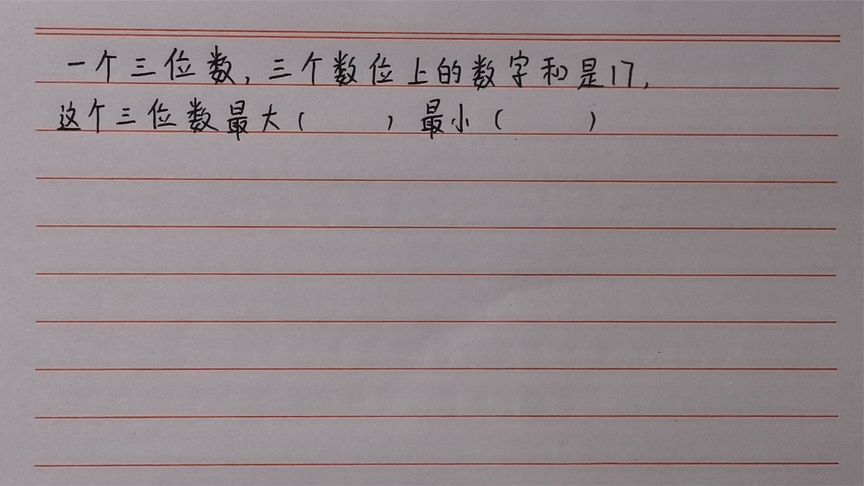 一个三位数,三个数位上的数字和是17,
这个三位数最大( )最小( )